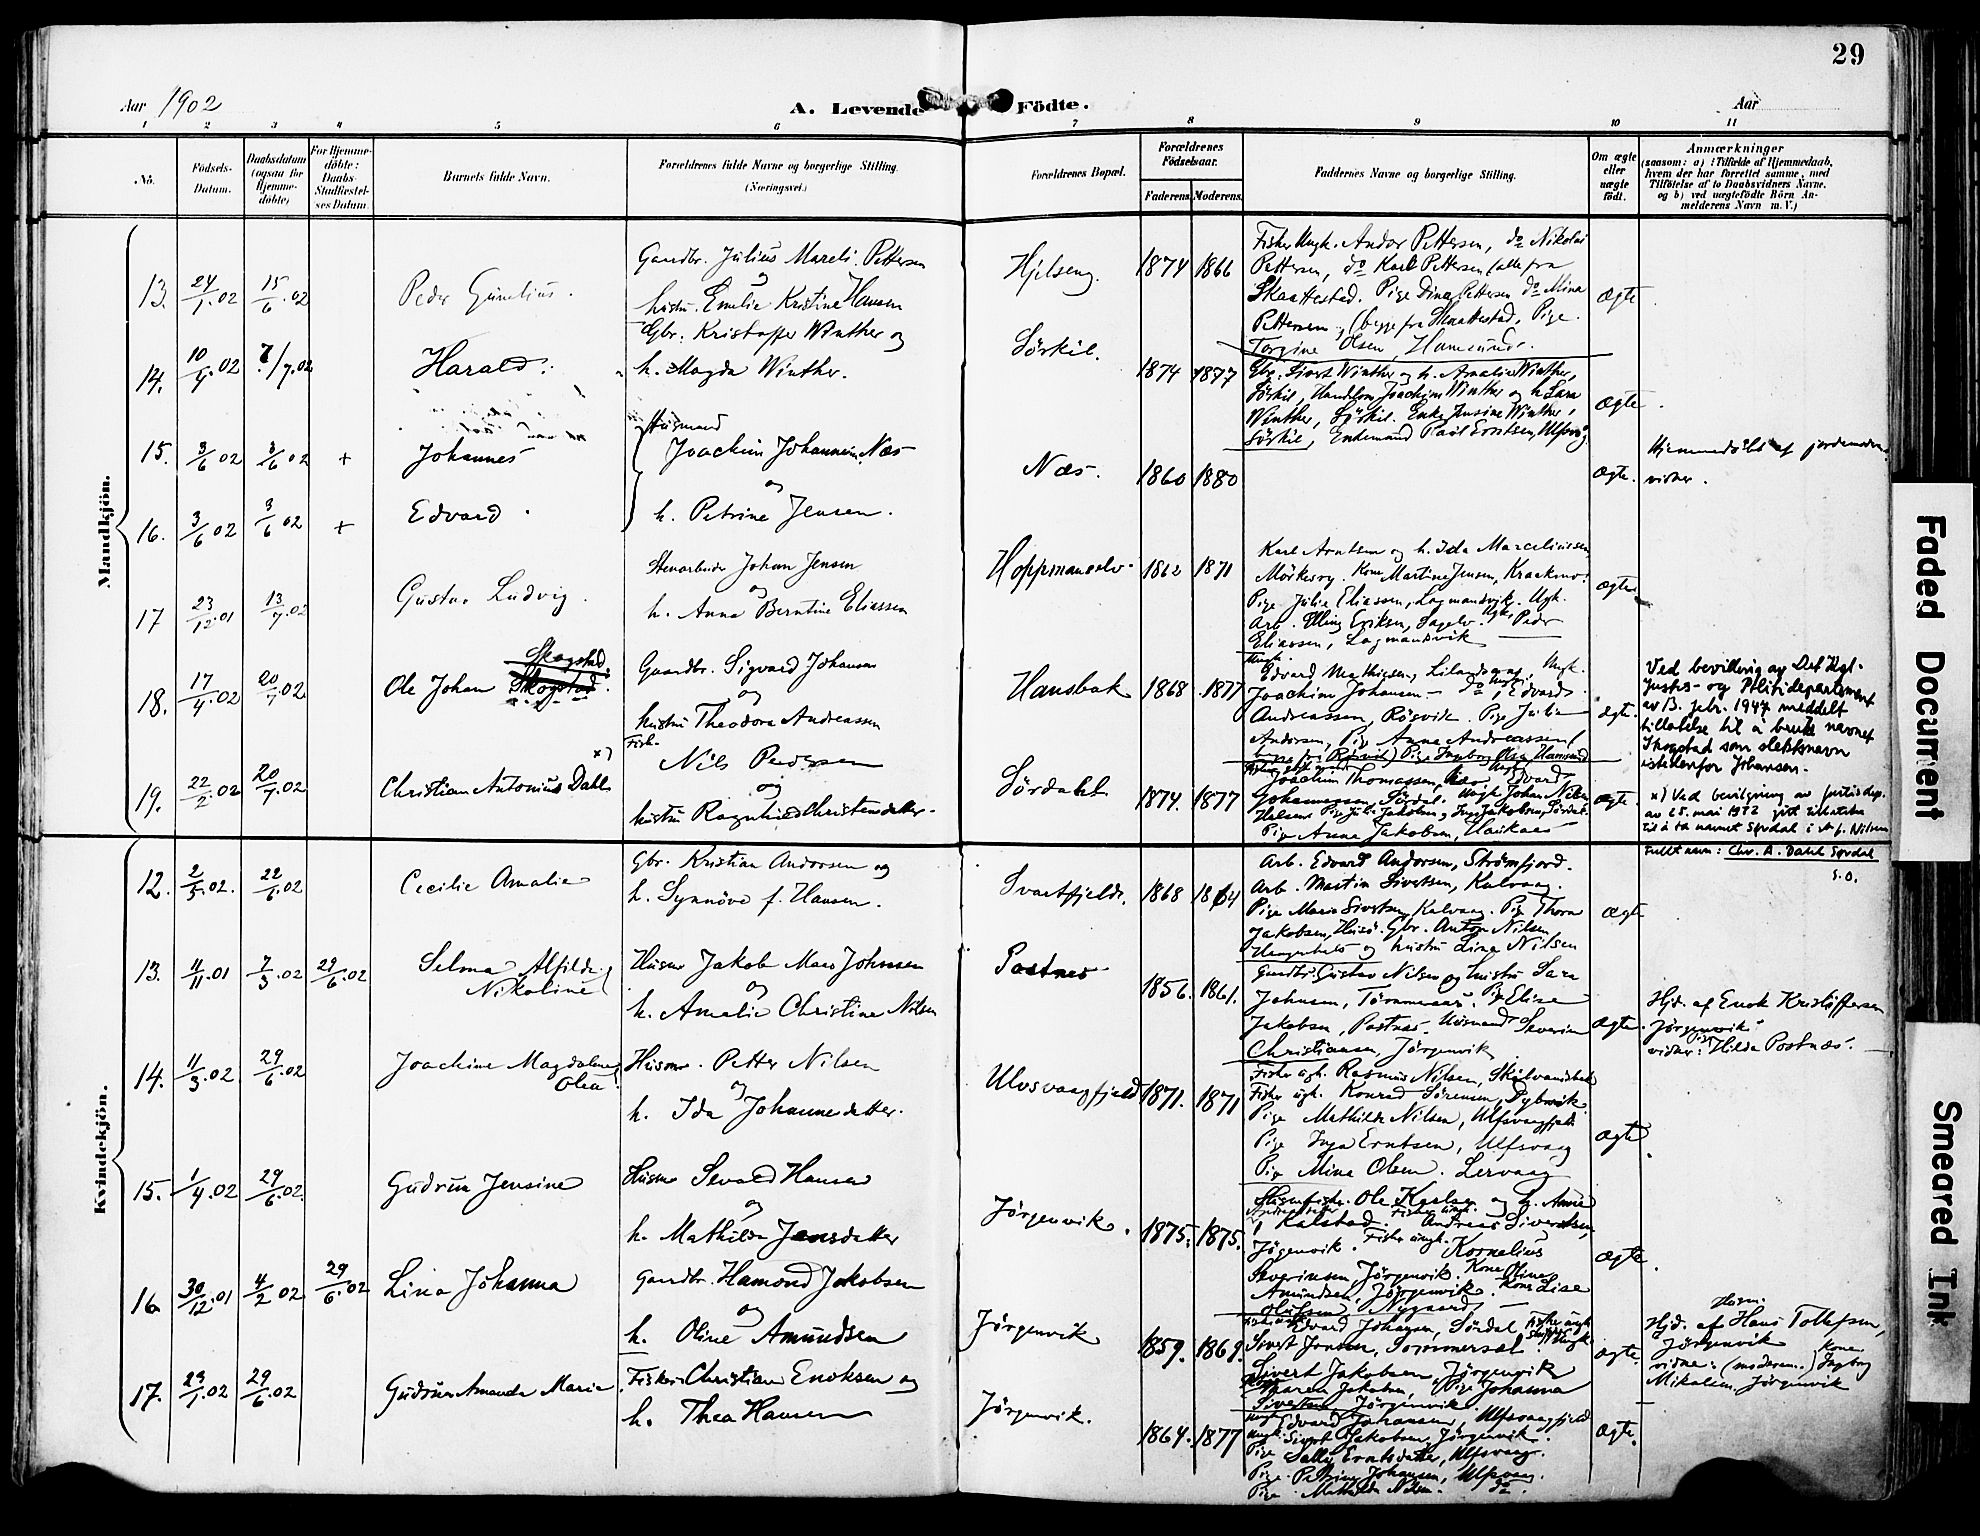 29
Aar 1902
A. Levende Födte.
Aar
1 2 3 4 5 6 7 8 9 10 11
No.
Födsels-Datum.
Daabsdatum (ogsaa for Hjemme-döbte)
For Hjemme-döbte: Daabs-Stadfæstel-ses Datum.
Barnets fulde Navn.
Forældrenes fulde Navne og borgerlige Stilling. (Næringsvei.)
Forældrenes Bopæl.
Forældrenes Födselsaar.
Faderens. Moderens.
Faddernes Navne og borgerlige Stilling.
Om ægte eller uægte födt.
Anmærkninger
(saasom: a) i Tilfælde af Hjemmedaab,
hvem der har forrettet samme, med
Tilföielse af to Daabsvidners Navne,
og b) ved uægtefödte Börn An-
melderens Navn m. V.)
Mandkjön.
13. 24/1.02 15/6.02 Peder Gunelius.
Gaardbr. Julius Mareli. Pettersen
og
hustru Emelie Kristine Hansen
Hjelseng. 1874 1866
Fisker Ungk. Andor Pettersen, do Nikolai
Pettersen, do Karl Pettersen (alle fra
Skaattestad. Pige Dina Pettersen do Mina
Pettersen, (begge fra Skaattestad, Pige
Torgine Olsen, Hamsund.
Ægte
14. 10/4.02 7/7.02 Harald.
Gbr. Kristoffer Winther og
h. Magda Winther.
Sörkil. 1874 1877
Gbr. Sivert Winther og h. Amalie Winther,
Sörkil, Handlsm Joachim Winther og h Sara
Winther, Sörkil. Enke Jensine Winther,
Sörkil, Enkemand Paul Erntsen, Ulfsvåg
Ægte.
15. 3/6 02 3/6 02 + Johannes
Husmand
Joachim Johannesen Næs
og
h. Petrine Jensen.
Næs. 1860 1880
Ægte.
Hjemmedöbt af jordemoder
vidner.
16. 3/6 02 3/6 02 + Edvard.
17 23/12.01 13/7.02 Gustav Ludvig.
Stenarbeider Johan Jensen
og
h. Anna Berntine Eliassen
Hoppmanselv 1862 1871
Karl Arntsen og h. Ida Marceliussen
Mörkesvg. Kone Martine Jensen, Kraakmo.
Pige Julie Eliassen, Lagmandsvik. Ugk.
Arb. Elling Eriksen, Sagelv. Ugk. Peder
Eliassen, Lagmandsvik
Ægte
18. 17/4.02 20/7.02 Ole Johan Skogstad.
Skogstad
Gaardbr. Sigvard Johansen
og
hustru Theodora Andreassen
Hansbak 1868 1877
Ungk.
Edvard Mathisen, Ungk.
Joachim Johansen - do, Ungk. Edvard
Andreassen, Rösvik. Pige Julie
Andorsen, Pige Anna Andreassen (
begge fra Rösvik) Pige Ingeborg Olsen Hamsund
Ægte.
Ved bevilling av Det Kgl.
Justis- og Politidepartement
av 13. febr. 1947 meddelt
tillatelse til å bruke navnet
Skogstad som slektsnavn
istedenfor Johansen.
19. 22/2.02 20/7.02 Christian Antonius Dahl x)
Fisk.
Nils Pedersen
og
hustru Ragnhild Christensdatter.
Sördahl 1874. 1877
Joachim Thomassen, Edvard
Johannessen, Sördal. Ungk Johan Nilsen
Helsem. Pige Julie Jakobsen, Inga Jakobsen, Sördal.
Pige Anna Jakobsen, Haukaas
Ægte.
x) Ved bevilgning av justisdep.
av 25. mai 1972 gitt tillatelse
til å ta navnet Sørdal i st. f. Nilsen
Fullt navn: Chr. A. Dahl Sørdal
S.O.
Kvindekjön.
12. 2/5.02. 22/6.02 Cecilie Amalie
Gbr. Kristian Andorsen og
h. Synnöve f. Hansen.
Svartfjeld. 1868 1864
Arb. Edvard Andorsen, Strömfjord.
Arb. Martin Sivertsen, Kalvaag.
Pige Marie Sivertsen, Kalvaag. Pige Thora
Jakobsen, Husö. Gbr. Anton Nilsen
og hustru Lina Nilsen
Ægte
13. 4/11.01 7/3.02 29/6.02 Selma Alfilde
Nikoline
Husm Jakob Maso Johnsen
og
h. Amalie Christine Nilsen
Postnes 1856. 1861.
Gaardbr. Gustav Nilsen og hustru Sara
Johnsen, Tömmeraas. Pige Elise
Jakobsen, Postnæs. Husmand Severin
Christiansen, Jörgenvik
Ægte.
Hjd. af Enok Kristoffersen
Jörgenvik.
vidner: Pige Hilda Postnæs.
14. 11/3.02 29/6.02 Joachine Magdalene
Olea.
Husm. Petter Nilsen
og
h. Ida Johannesdatter.
Ulvsvaagfjeld 1871. 1871
Fisker ugk. Rasmus Nilsen, Skjelvandsbak
Fisker ugk. Konrad Sörensen, Dybvik
Pige Mathilde Nilsen, Ulfsvaagfjeld
Pige Inga Erntsen, Ulfsvaag
Pige Mina Olsen. Lervaag
Ægte.
15. 1/4.02 29/6.02 Gudrun Jensine
Husm Sevald Hansen
og
h. Mathilda Jensdatter
Jörgenvik. 1875. 1875.
Ole Karlsen og h. Anne
Kalstad. Fisker Ungk. Andreas Sivertsen,
Jörgenvik. Fisker ungk. Kornelius
Severinsen, Jörgenvik. Kone Oline
Amundsen, Jörgenvik. Kone Lise
Olufsen, Nygaard
Ægte.
16 30/12.01 4/2 02 29/6.02 Lina Johanna
Gaardbr. Hamond Jakobsen
og
h. Oline Amundsen
Jörgenvik 1859. 1869.
Edvard Johansen, Sördal
Sivert Jensen, Sommersel. Ungk
Sivert Jakobsen, Jörgenvik
Maren Jakobsen, Pige Johanna
Sivertsen, Jörgenvik.
Ægte.
Husm.
Hjd. af Hans Tollefsen,
Jörgenvik
vidne: (moderen.) Kone Ingborg
Mikalsen, Jörgenvik
17. 23/1.02 29/6.02 Gudrun Amanda Marie
Fisker Christian Enoksen og
h. Thea Hansen
Jörgenvik. 1864. 1877
Ungk. Edvard Johansen, Ulfsvaagfjeld
Ungk. Sivert Jakobsen, Jörgenvik.
Pige Sally Erntsdatter, Ulfsvaag.
Pige. Petrine Johansen, Ulfsvaag.
Pige. Mathilde Nilsen. do.
Ægte.
Faded Document
Smeared Ink